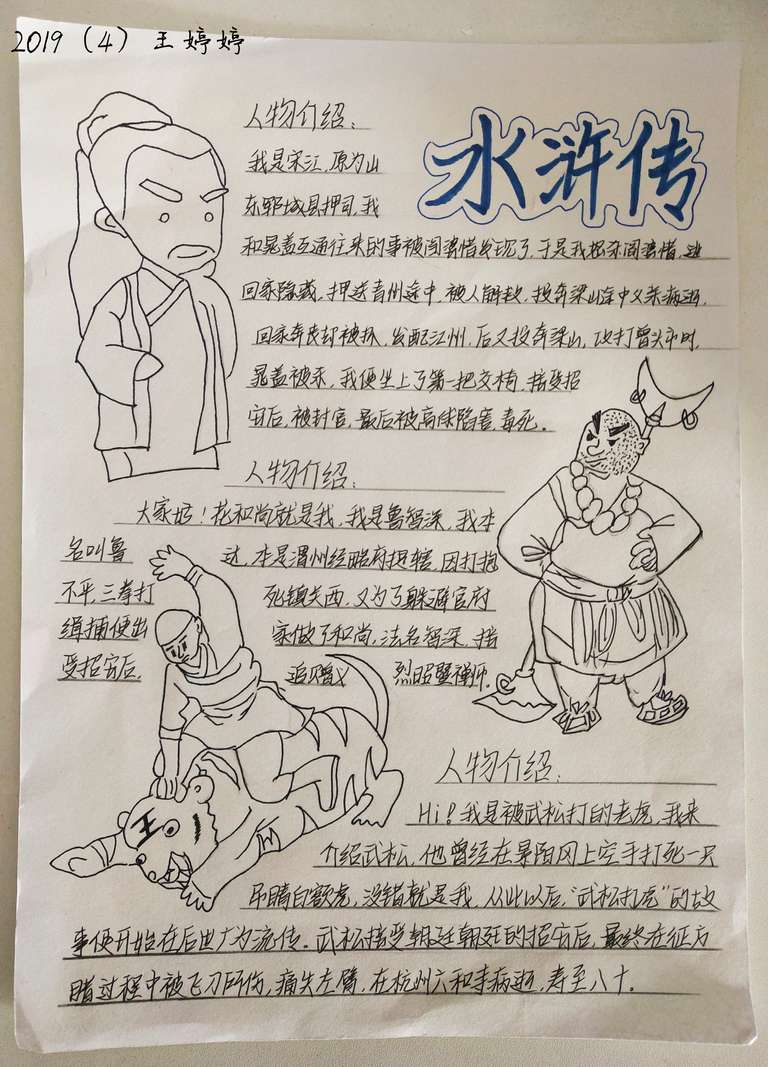 2019（4）王婷婷
水浒传
人物介绍：
我是宋江，原为山
东郓城县押司，我
和晁盖互通往来的事被阎婆惜发现了，于是我怒杀阎婆惜，逃
回家隐藏，押送青州途中，被人解救，投奔梁山途中父亲病逝，
回家奔丧却被抓，发配江州，后又投奔梁山，攻打曾头市时，
晁盖被杀，我便坐上了第一把交椅，接受招
安后，被封官，最后被高俅陷害，毒死。
人物介绍：
大家好！花和尚就是我，我是鲁智深，我本
名叫鲁 达，本是渭州经略府提辖，因打抱
不平，三拳打 死镇关西，又为了躲避官府
缉捕便出 家做了和尚，法名智深，接
受招安后， 追赠义 烈昭暨禅师。
人物介绍：
Hi！我是被武松打的老虎，我来
介绍武松，他曾经在景阳冈上空手打死一只
吊睛白额虎，没错就是我，从此以后，“武松打虎”的故
事便开始在后世广为流传。武松接受朝廷朝廷的招安后，最终在征方
腊过程中被飞刀所伤，痛失左臂，在杭州六和寺病逝，寿至八十。
王